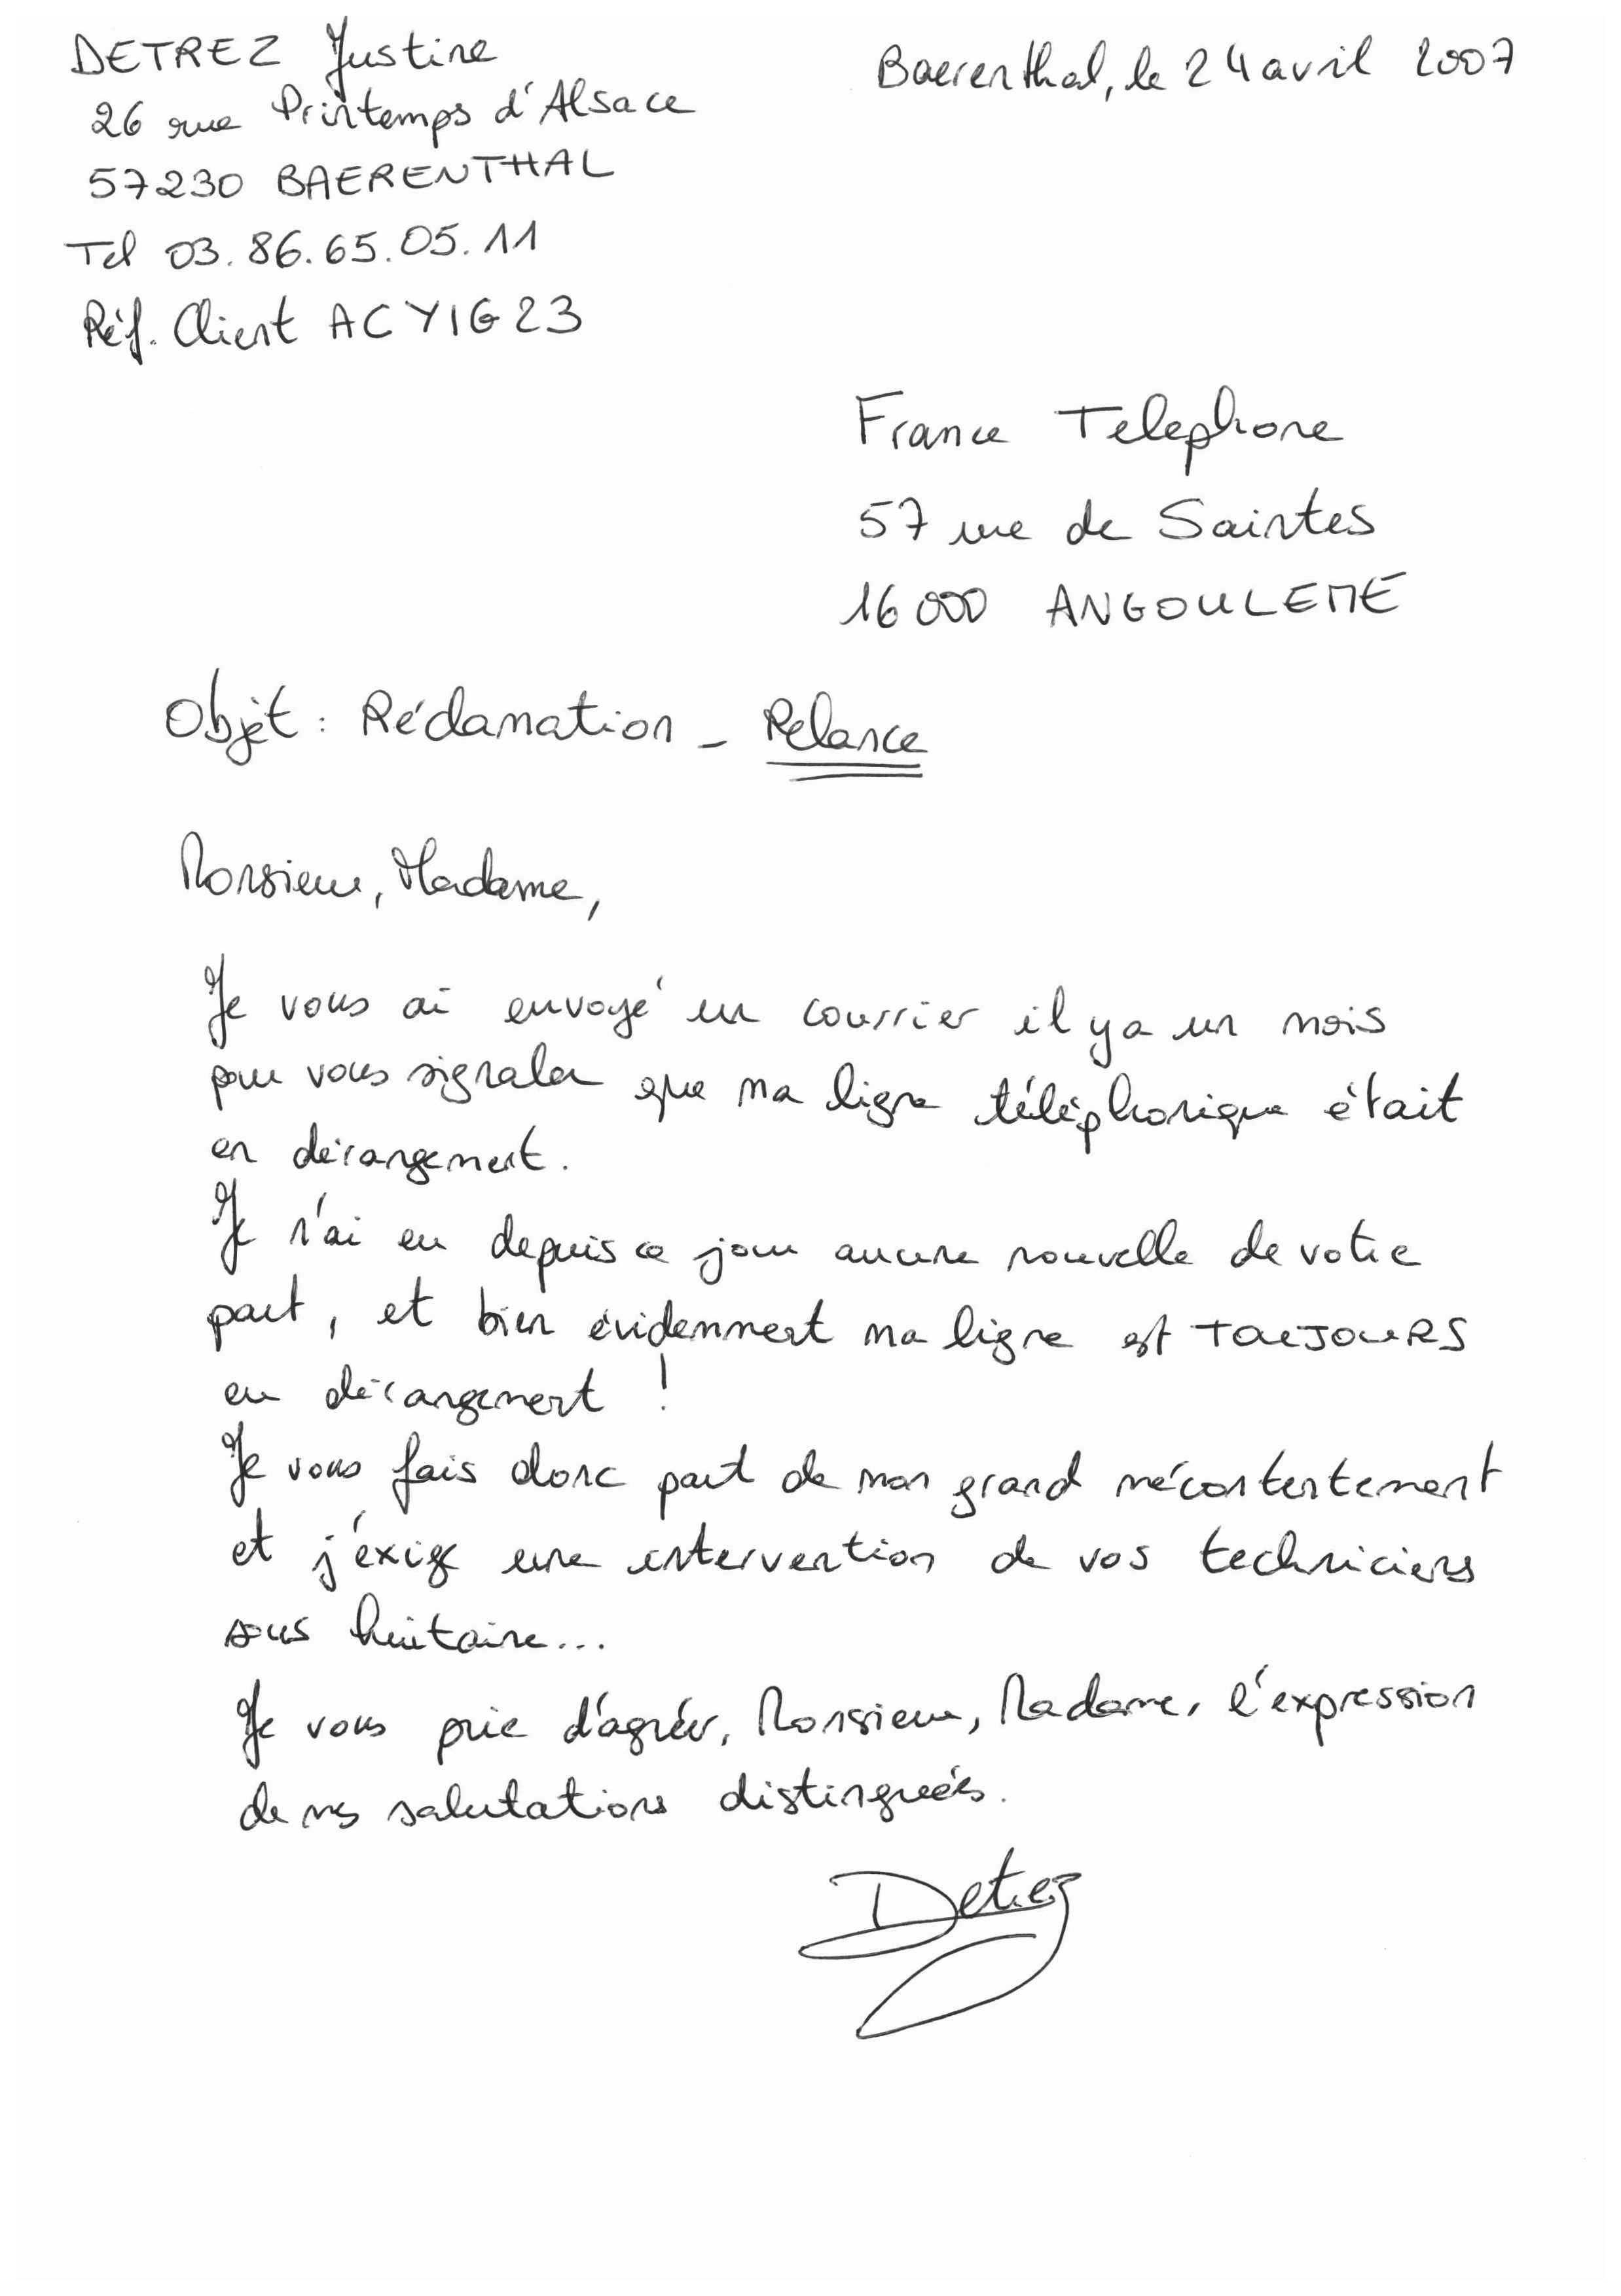 DETREZ Justine
Baerenthal, le 24 avril 2007
26 rue Printemps d'Alsace
57230 BAERENTHAL
Tel 03.86.65.05.11
Réf. Client ACYIG23
France Telephone
57 rue de Saintes
16000 ANGOULEME
Objet : Réclamation - Relance
Monsieur, Madame,
Je vous ai envoyé un courrier il y a un mois
pour vous signaler que ma ligne téléphonique était
en dérangement.
Je n'ai eu depuis ce jour aucune nouvelle de votre
part, et bien évidemment ma ligne est TOUJOURS
en dérangement !
Je vous fais donc part de mon grand mécontentement
et j'exige une intervention de vos techniciens
sous huitaine...
Je vous prie d'agréer, Monsieur, Madame, l'expression
de mes salutations distinguées.
Detrez